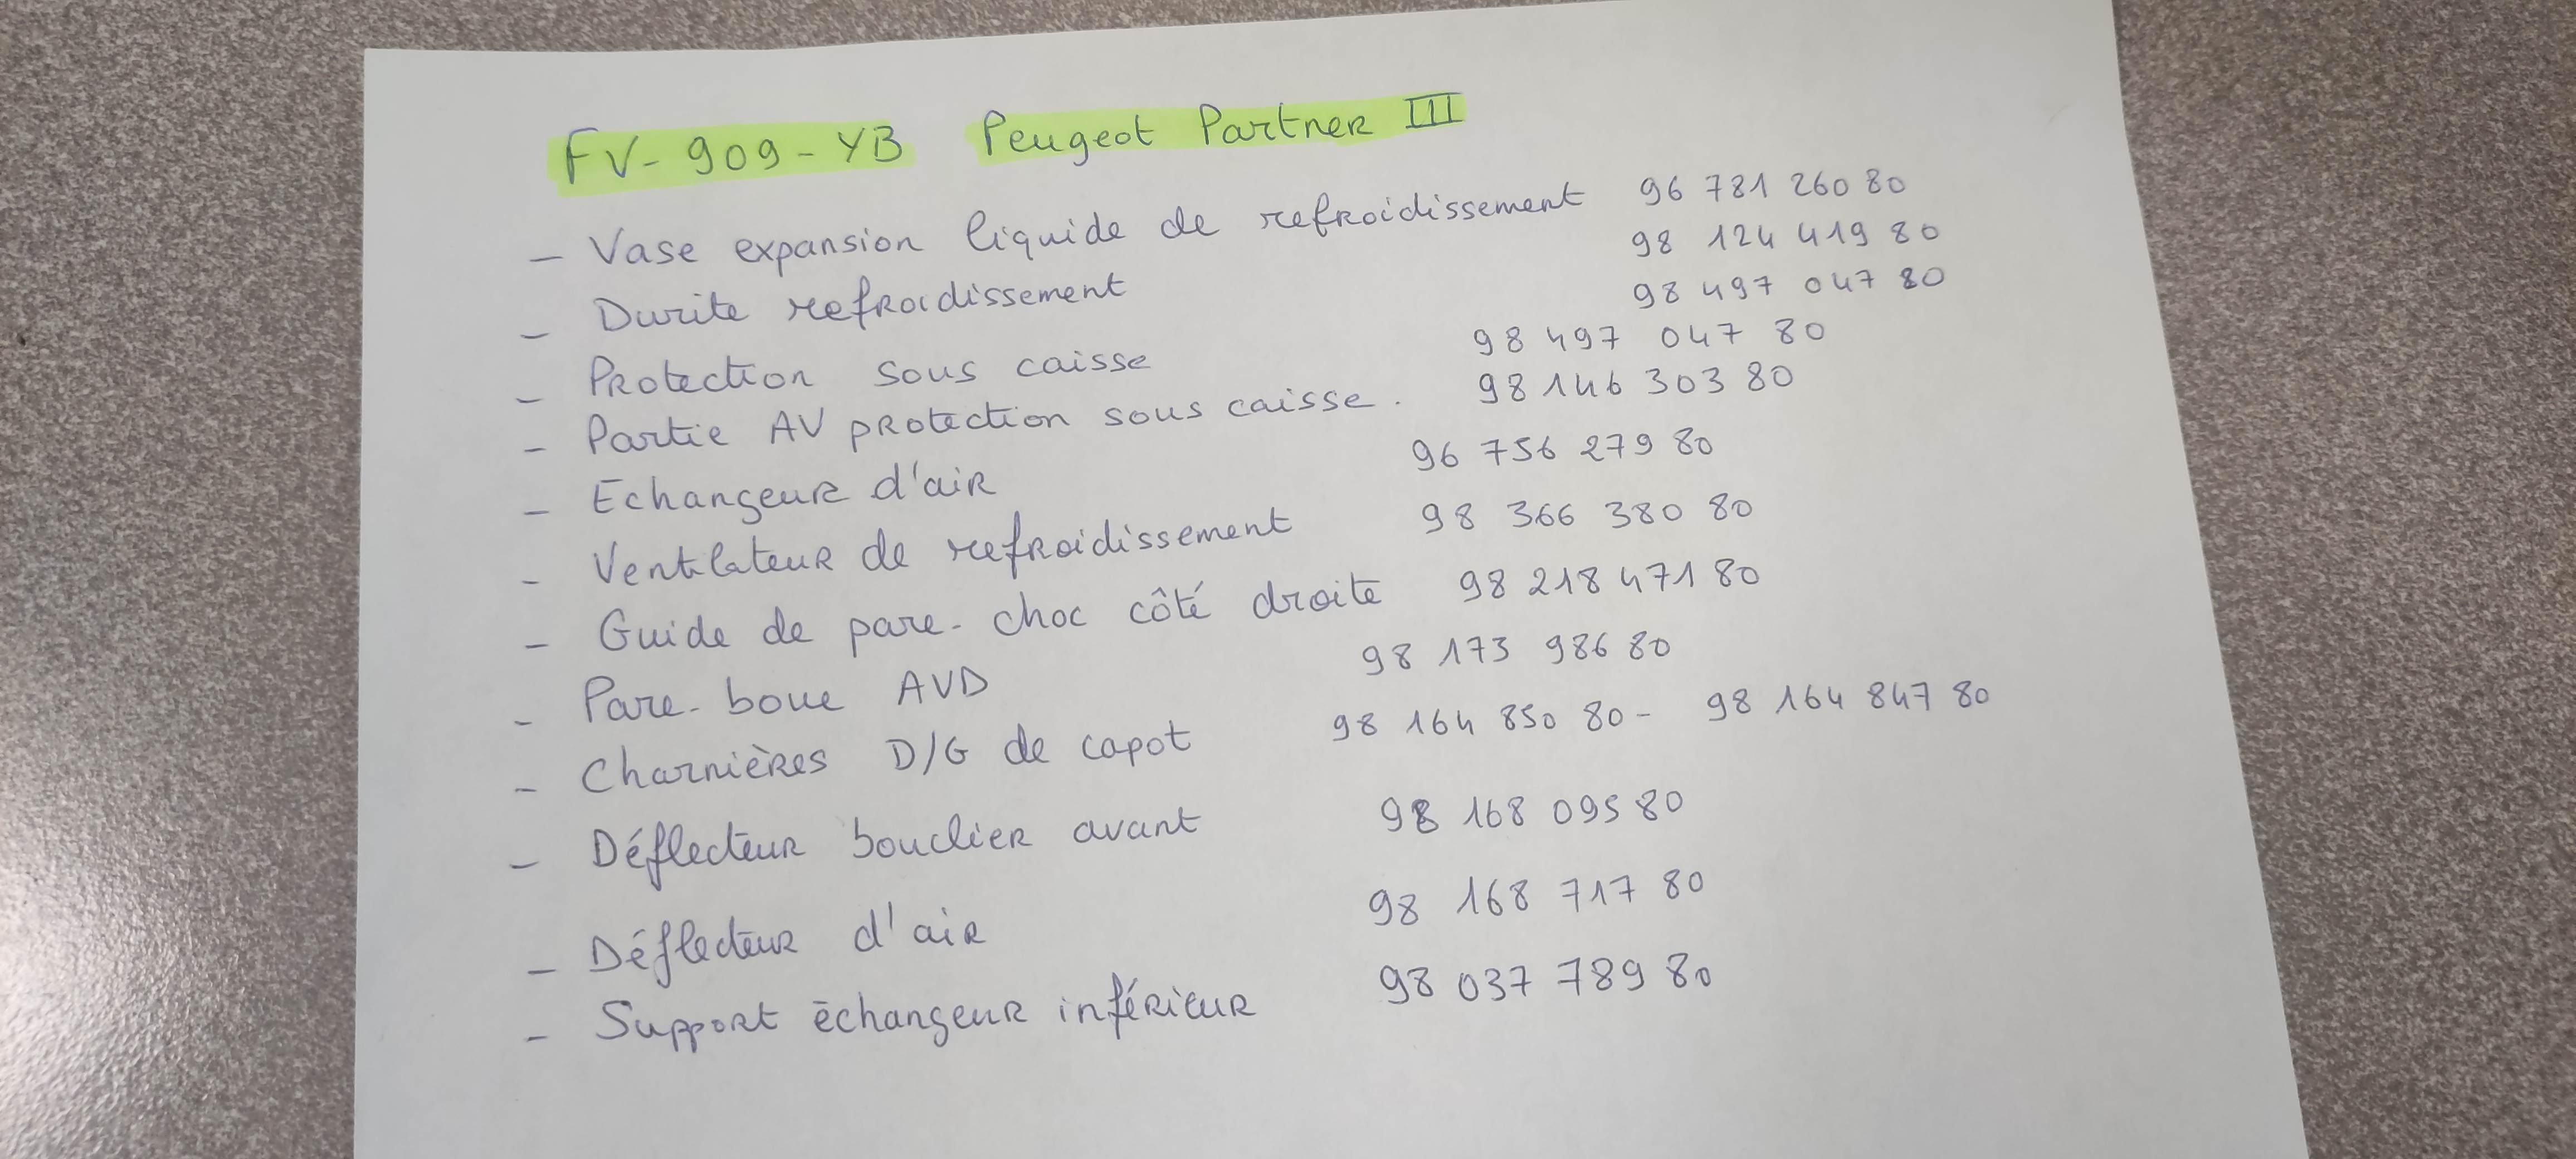 FV-909-YB Peugeot Partner III
- Vase expansion liquide de refroidissement 96 781 260 80
- Durite refroidissement 98 124 419 80
- Protection sous caisse 98 497 047 80
- Partie AV protection sous caisse. 98 497 047 80
- Echangeur d'air 98 146 303 80
- Ventilateur de refroidissement 96 756 279 80
- Guide de pare-choc côté droite 98 366 380 80
- Pare-boue AVD 98 218 471 80
- Charnières D/G de capot 98 173 986 80
- Déflecteur bouclier avant 98 164 850 80 - 98 164 847 80
- Déflecteur d'air 98 168 095 80
- Support échangeur inférieur 98 168 717 80
98 037 789 80